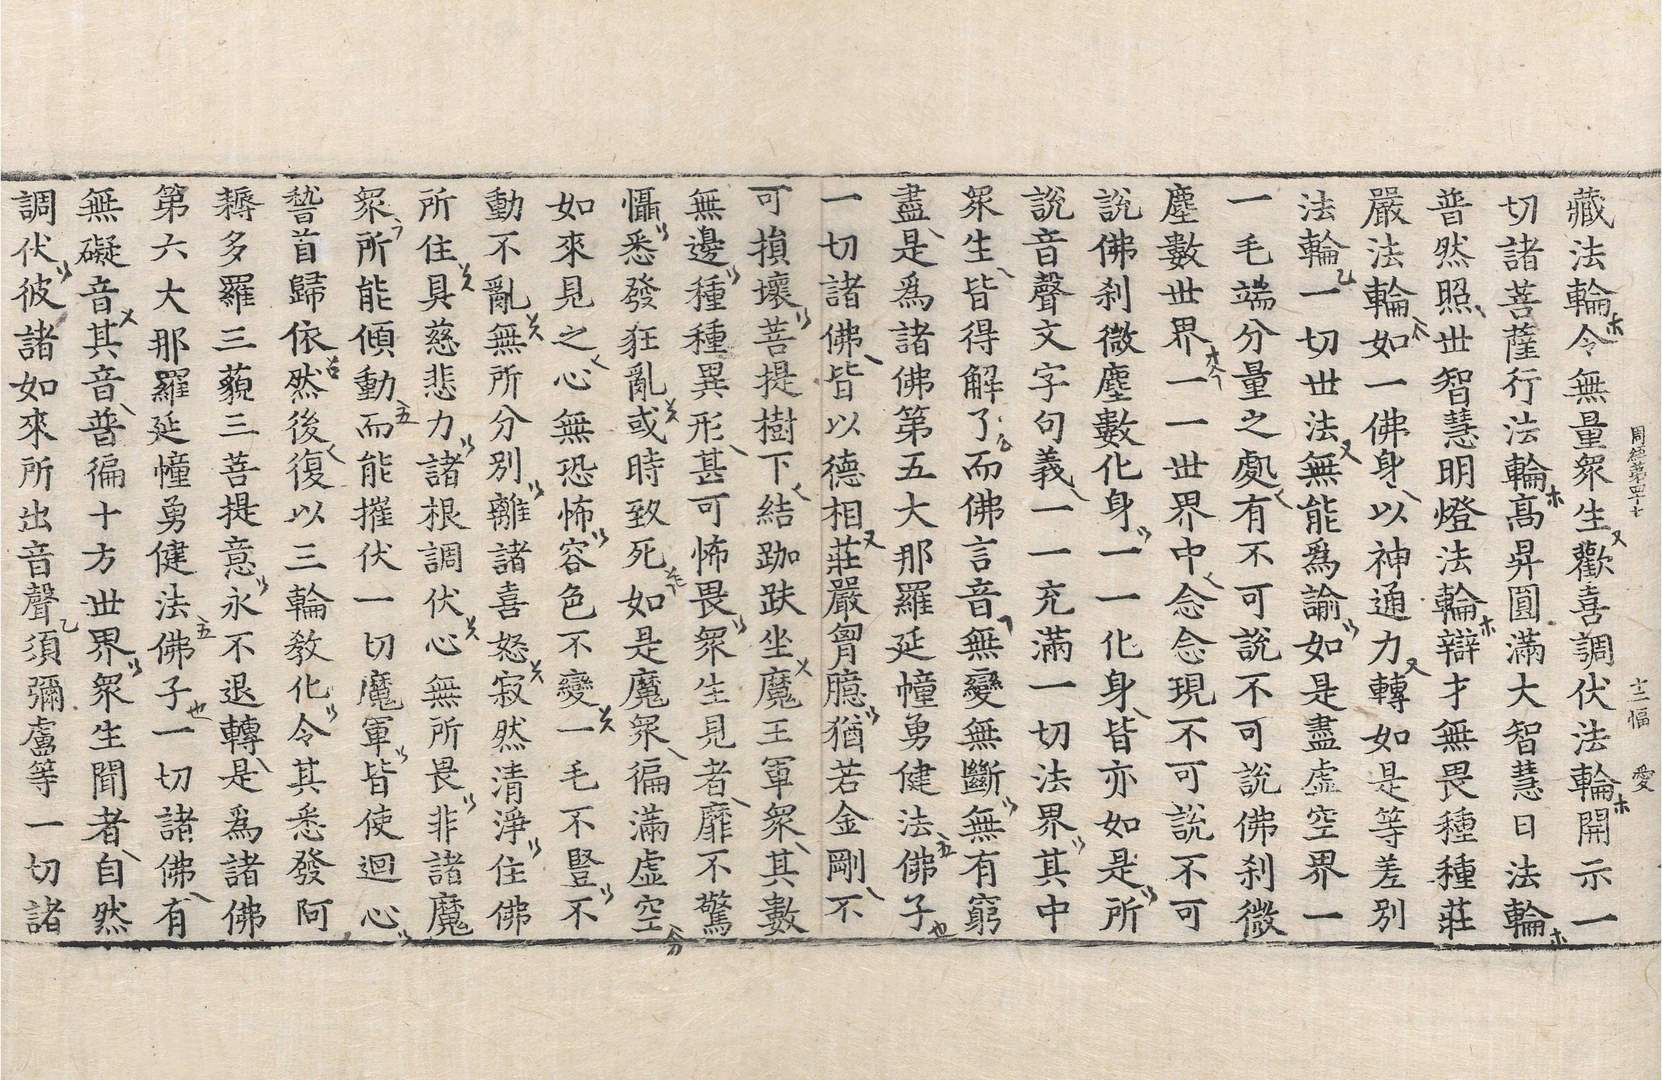 周經第四十七　十二幅　愛
藏法輪令無量衆生歡喜調伏法輪開示一
切諸菩薩行法輪高昇圓滿大智慧日法輪
普然照世智慧明燈法輪辯才無畏種種莊
嚴法輪如一佛身以神通力轉如是等差別
法輪一切世法無能爲諭如是盡虛空界一
一毛端分量之處有不可說不可說佛刹微
塵數世界一一世界中念念現不可說不可
說佛刹微塵數化身一一化身皆亦如是所
說音聲文字句義一一充滿一切法界其中
衆生皆得解了而佛言音無變無斷無有窮
盡是爲諸佛第五大那羅延幢勇健法佛子
一切諸佛皆以德相莊嚴胷臆猶若金剛不
可損壞菩提樹下結跏趺坐魔王軍衆其數
無邊種種異形甚可怖畏衆生見者靡不驚
懾悉發狂亂或時致死如是魔衆徧滿虛空
如來見之心無恐怖容色不變一毛不豎不
動不亂無所分別離諸喜怒寂然清淨住佛
所住具慈悲力諸根調伏心無所畏非諸魔
衆所能傾動而能摧伏一切魔軍皆使迴心
稽首歸依然後復以三輪教化令其悉發阿
耨多羅三藐三菩提意永不退轉是爲諸佛
第六大那羅延幢勇健法佛子一切諸佛有
無礙音其音普徧十方世界衆生聞者自然
調伏彼諸如來所出音聲須彌盧等一切諸